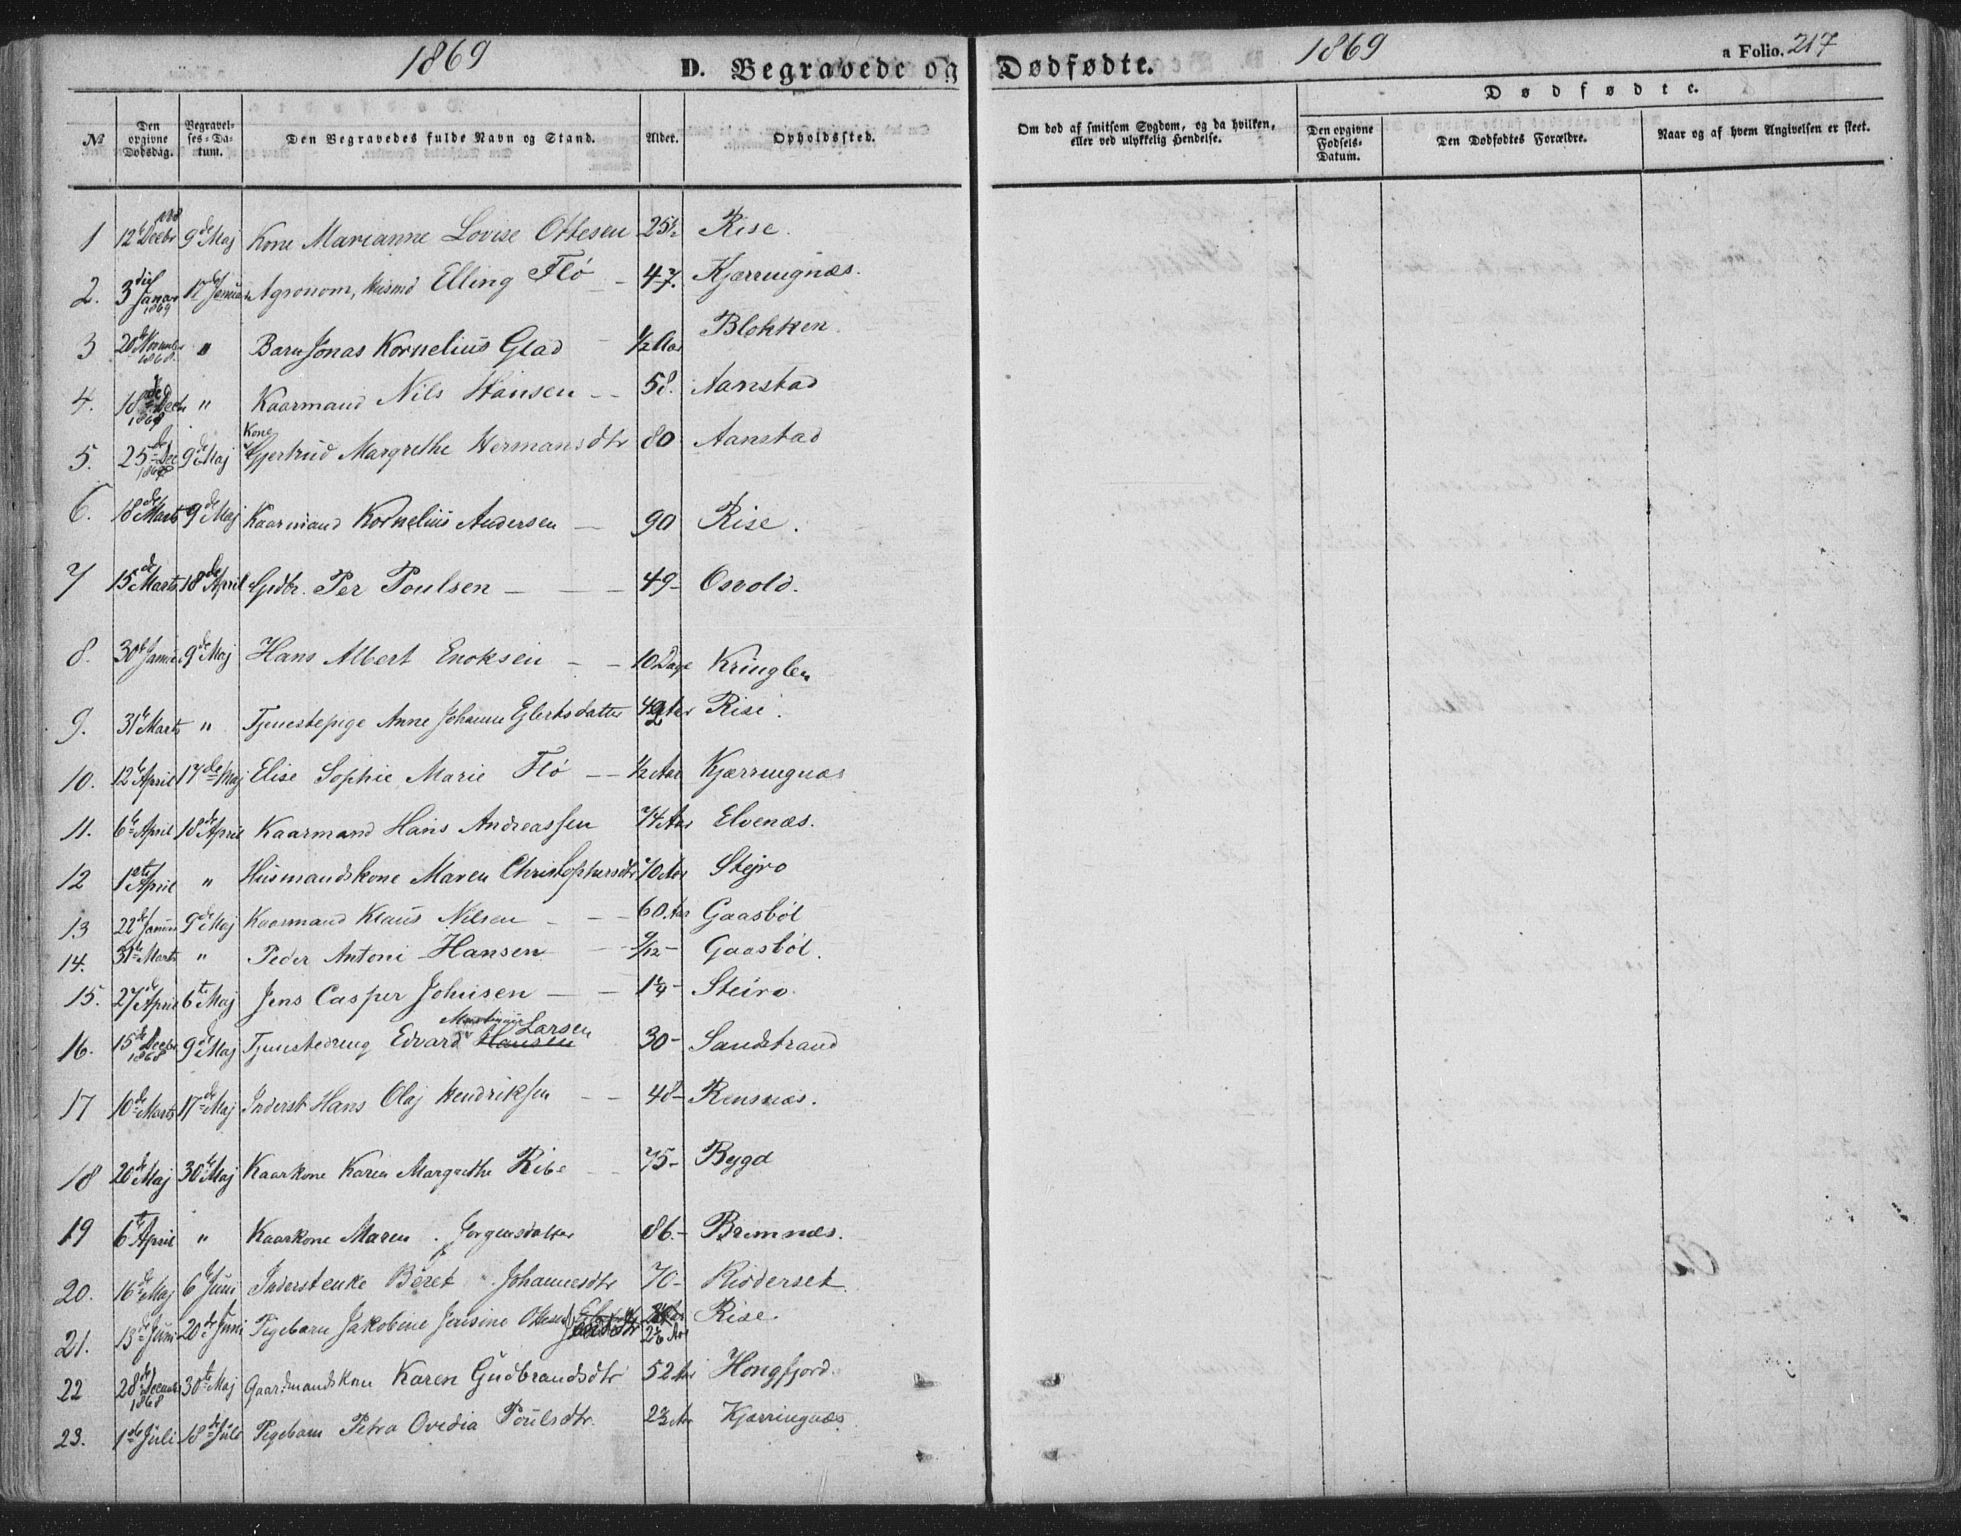 1869 D. Begravede og Dødfødte. 1869 a Folio. 217
Dødfødte.
No Den opgivne Dødsdag. Begravelses-Datum. Den Begravedes fulde Navn og Stand. Alder. Opholdssted. Om død af smitsom Sygdom, og da hvilken, eller ved ulykkelig Hendelse. Den opgivne Fødsels-Datum. Den Dødfødtes Forældre. Naar og af hvem Angivelsen er skeet.
1 12te Decbr 9de Maj Kone Marianne Lovise Ottesen Rise.
2. 3die Januar 1869 Januar Agronom, Husmd Elling Flö - 47. Kjærringnæs.
3 20de Novembr 1868. " Barn Jonas Kornelius Glad 1/2 Aar Blokken.
4. 18de Decbr " Kaarmand Nils Hansen - - 58. Aanstad
5. 25de Dec 9de Maj Kone Gjertrud Margrethe Hermansdtr 80 Aanstad
6. 18de Marts 9de Maj Kaarmand Kornelius Andersen - 90 Rise.
7 15de Marts 18de April Gdbr. Per Poulsen - - - 49 - Osvold.
8. 30te Januar 9de Maj Hans Albert Enoksen - - 10 Dage Kringlen
9. 31te Marts " Tjenestepige Anne Johanne Eilertsdatter Rise.
10. 12te April 17de Maj Elise Sophie Marie Flö - - 1/2 Aar Kjærringnæs
11. 6te April 18de April Kaarmand Hans Andreassen 74 Aar Elvenæs.
12 1ste April " Husmandskone Maren Christophersdtr 70 Aar Stejro
13 22de Januar 9de Maj Kaarmand Klaus Nilsen - - - 60 Aar Gaasböl
14. 31te Marts " Peder Antoni Hansen 9/12 - Gaasböl.
15. 27de April 6te Maj Jens Casper Johnsen - - Steiro
16. 15de Decbr 1868 9de Maj Tjenestedreng Edvard Martinus Larsen Hansen 30 - Sandstrand
17 10de Marts 17de Maj Inderst Hans Olaj Hendriksen - - 48 - Rensnæs.
18 20de Maj 30te Maj Kaarkone Karen Margrethe Ribe - 75 - Bygd
19 6te April " Kaarkone Maren Jørgensdatter 86. - Bremnæs.
20. 16de Maj 6te Juni Inderstenke Beret Johannesdtr 70 - Kidderset
21. 13de Juni 20de Juni Pigebarn Jakobine Jensine Ottesen Rise.
22 28de Decembr 1868 30te Maj Gaardmandskone Karen Gudbrandsdtr 52 Aar Hongfjord.
23. 1ste Juli 18de Juli Pigebarn Petra Ovedia Poulsdtr. Kjærringnæs